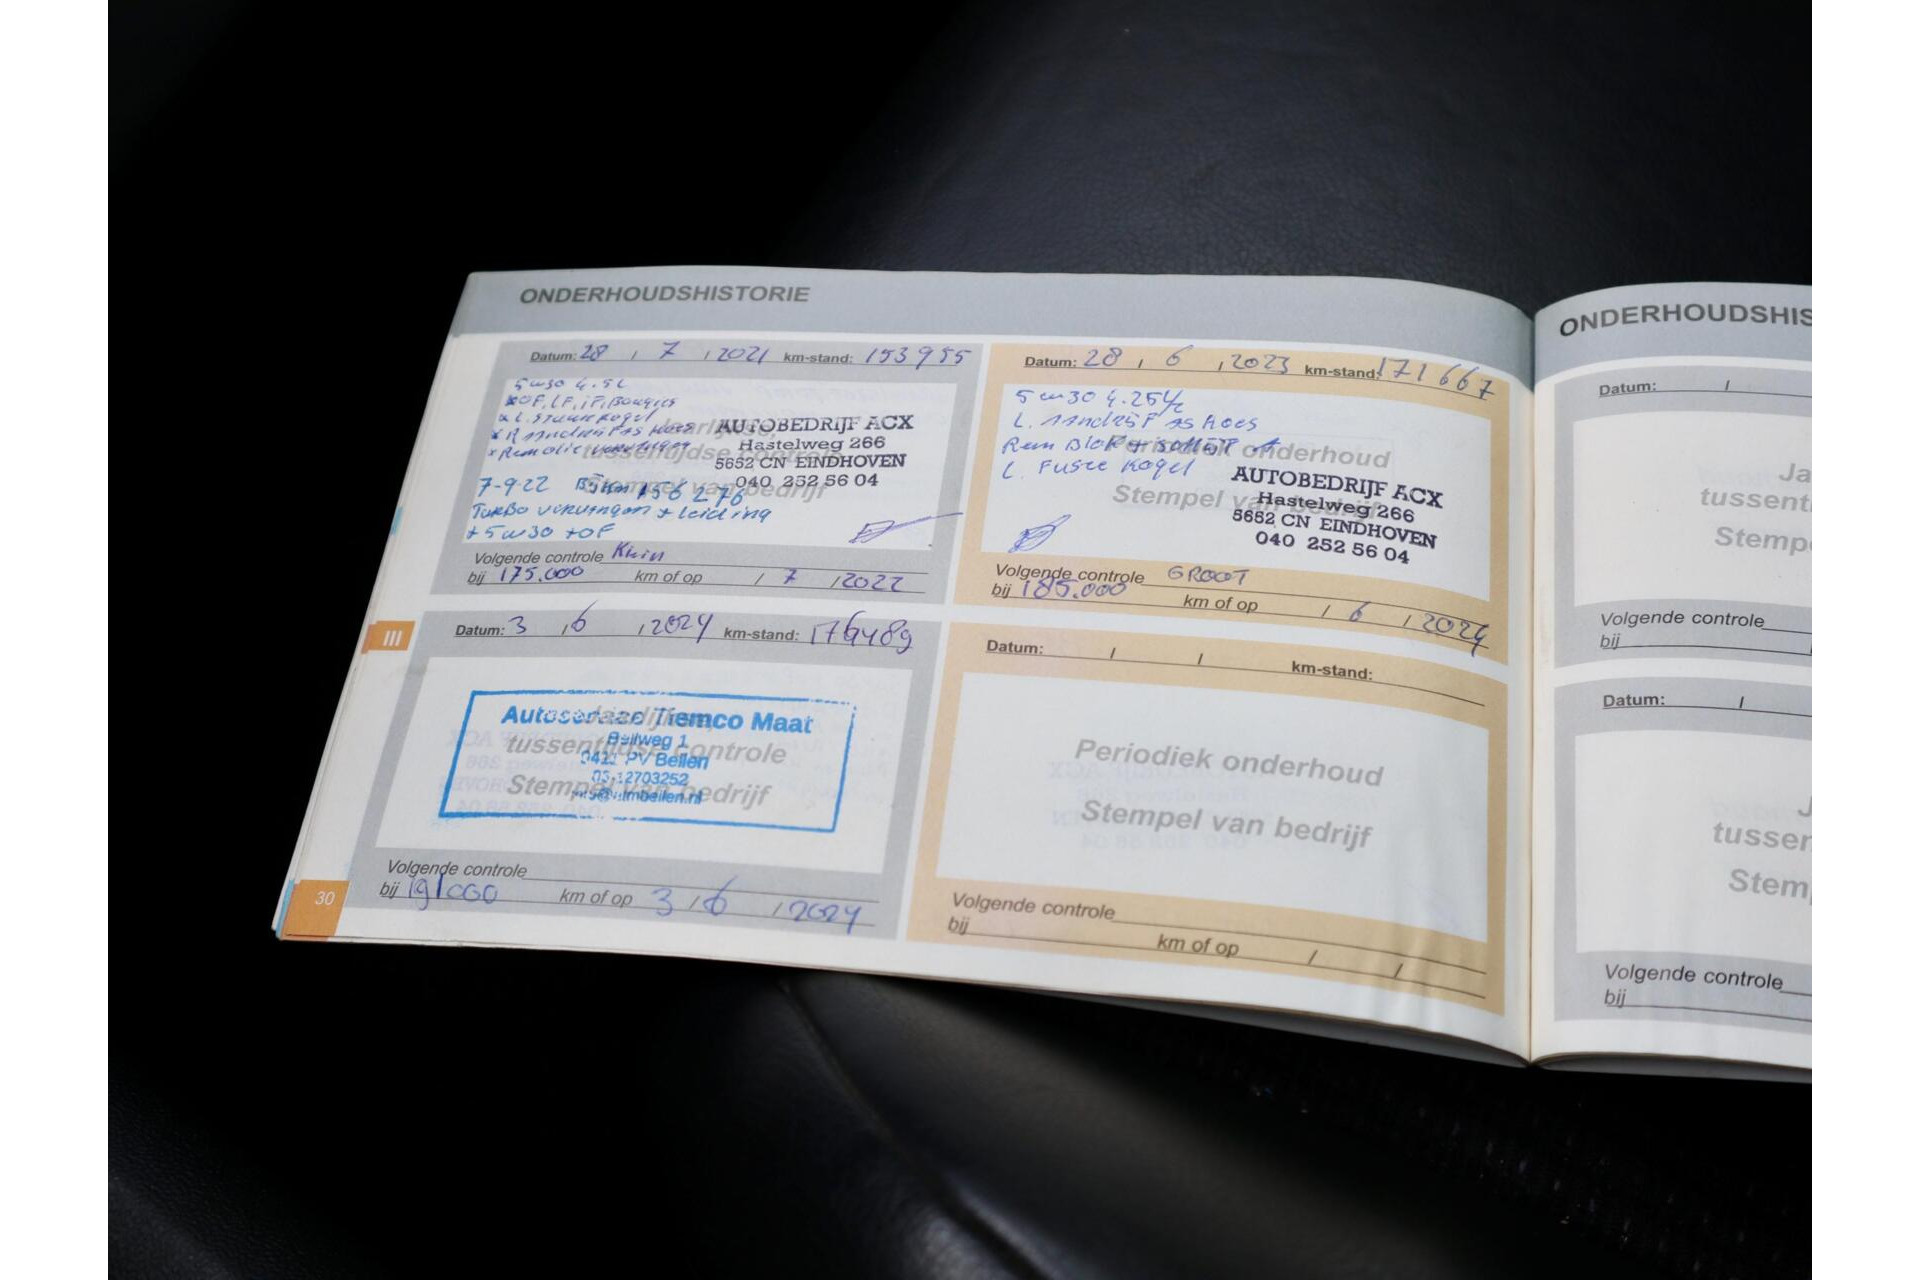 ONDERHOUDSHISTORIE
Datum: 28 / 7 / 2021 km-stand: 153955
5w30 4.5L
*OF, LF, iF, Bougies
* L. stuurkogel
* R Aandrijf as Hoes
* Remolie
AUTOBEDRIJF ACX
Hastelweg 266
5652 CN EINDHOVEN
040 252 56 04
7-9-22 Bij km 156276
Turbo vervangen + leiding
+ 5w30 + OF
Volgende controle Klein
bij 175.000 km of op / 7 / 2022
Datum: 28 / 6 / 2023 km-stand: 171667
5w30 4.25L
L. Aandrijf as Hoes
Rem Blok + schijf A
L. Fusee Kogel
Periodiek onderhoud
Stempel van bedrijf
AUTOBEDRIJF ACX
Hastelweg 266
5652 CN EINDHOVEN
040 252 56 04
Volgende controle GROOT
bij 185.000 km of op / 6 / 2024
III
Datum: 3 / 6 / 2024 km-stand: 176489
tussentijdse controle
Stempel van bedrijf
Autoservice Tiemco Maat
Beilweg 1
PV Beilen
Volgende controle
bij 191000 km of op 3 / 6 / 2024
Datum: / / km-stand:
Periodiek onderhoud
Stempel van bedrijf
Volgende controle
bij km of op / /
30
ONDERHOUDSHIS
Datum: /
Ja
tussent
Stemp
Volgende controle
bij
Datum: /
J
tusser
Stem
Volgende controle
bij